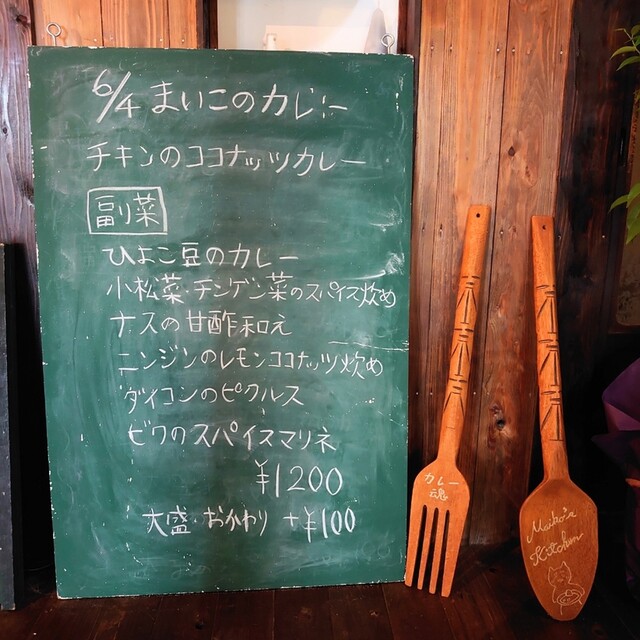 6/4 まいこのカレー
チキンのココナッツカレー
副菜
ひよこ豆のカレー
小松菜・チンゲン菜のスパイス炒め
ナスの甘酢和え
ニンジンのレモンココナッツ炒め
ダイコンのピクルス
ビワのスパイスマリネ
¥1200
大盛・おかわり +¥100
カレー
魂
Maiko's
Kitchen